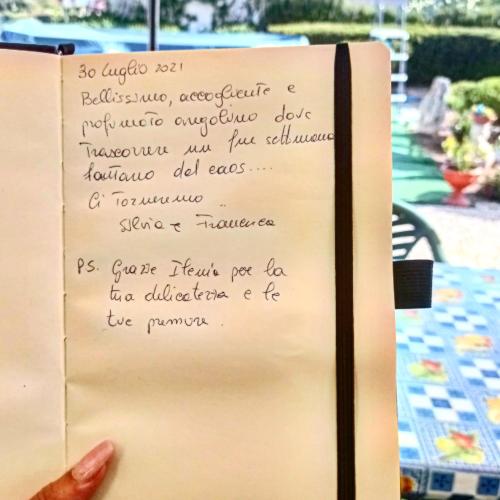 30 Luglio 2021
Bellissimo, accogliente e
profumato angolino dove
Trascorrere un fine settimana
lontano dal caos....
Ci Torneremo ..
Silvia e Francesca
PS. Grazie Ilenia per la
tua delicatezza e le
tue premure.